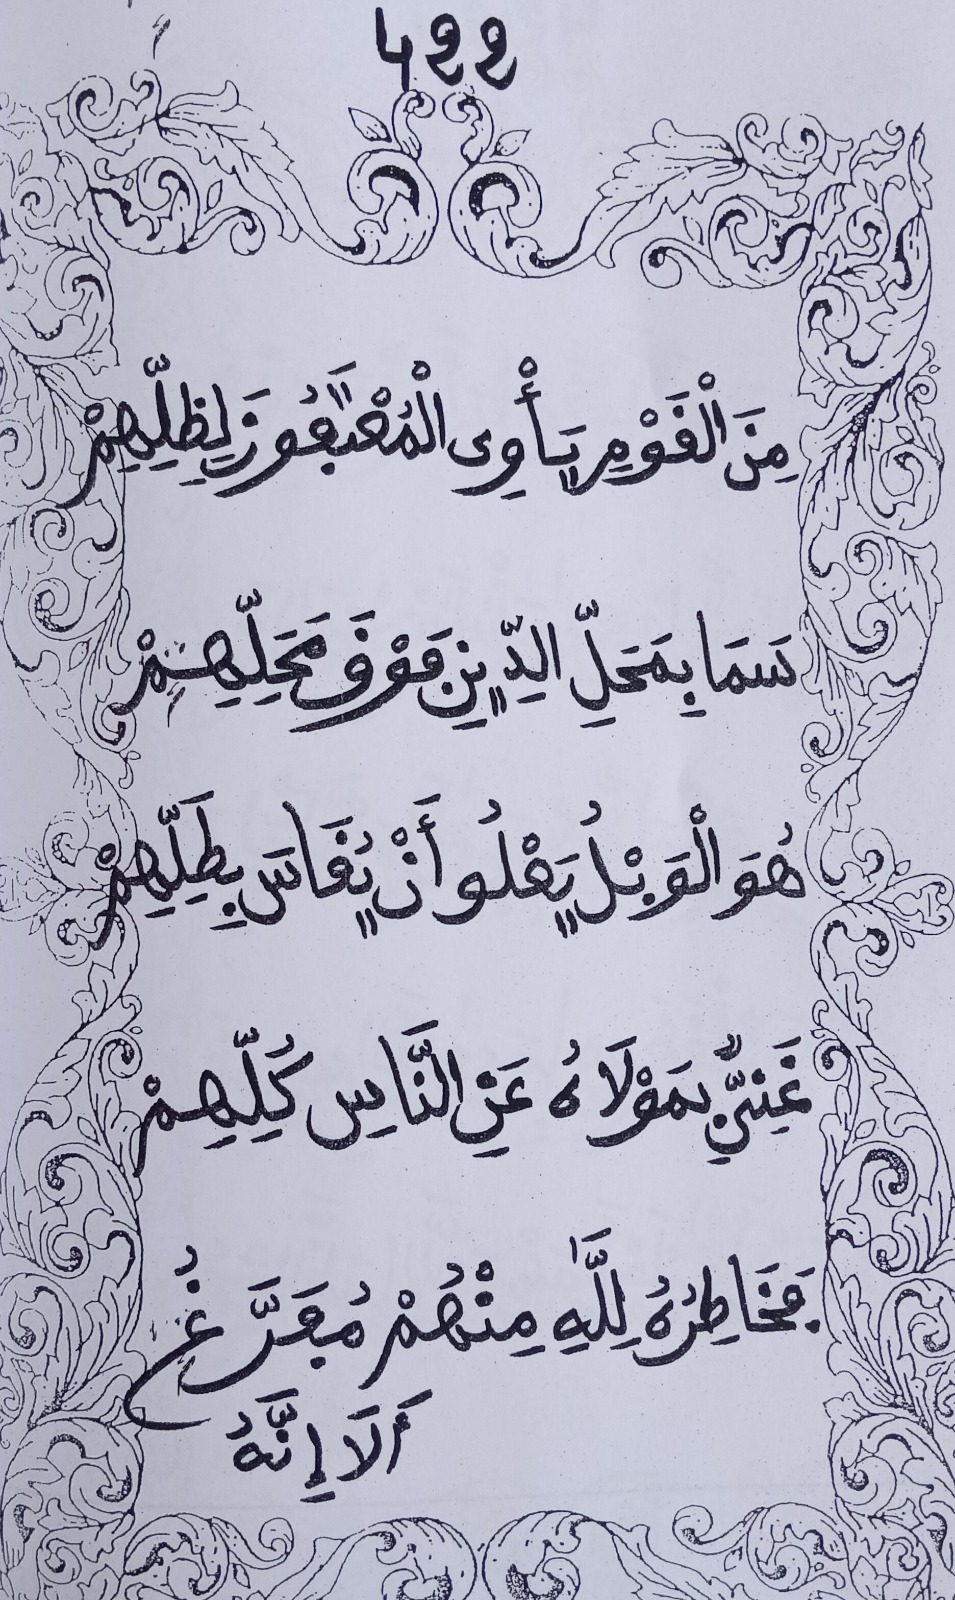 422
مِنَ الْقَوْمِ يَأْوِى الْمُعْتَفُونَ لِظِلِّهِمْ
سَمَا بِمَحَلِّ الدِّينِ فَوْقَ مَحَلِّهِمْ
هُوَ الْوَبْلُ يَعْلُو أَنْ يُقَاسَ بِطَلِّهِمْ
غَنِيٌّ بِمَوْلَاهُ عَنِ النَّاسِ كُلِّهِمْ
فَخَاطِرُهُ لِلَّهِ مِنْهُمْ مُفَرَّغُ
أَلَا إِنَّهُ